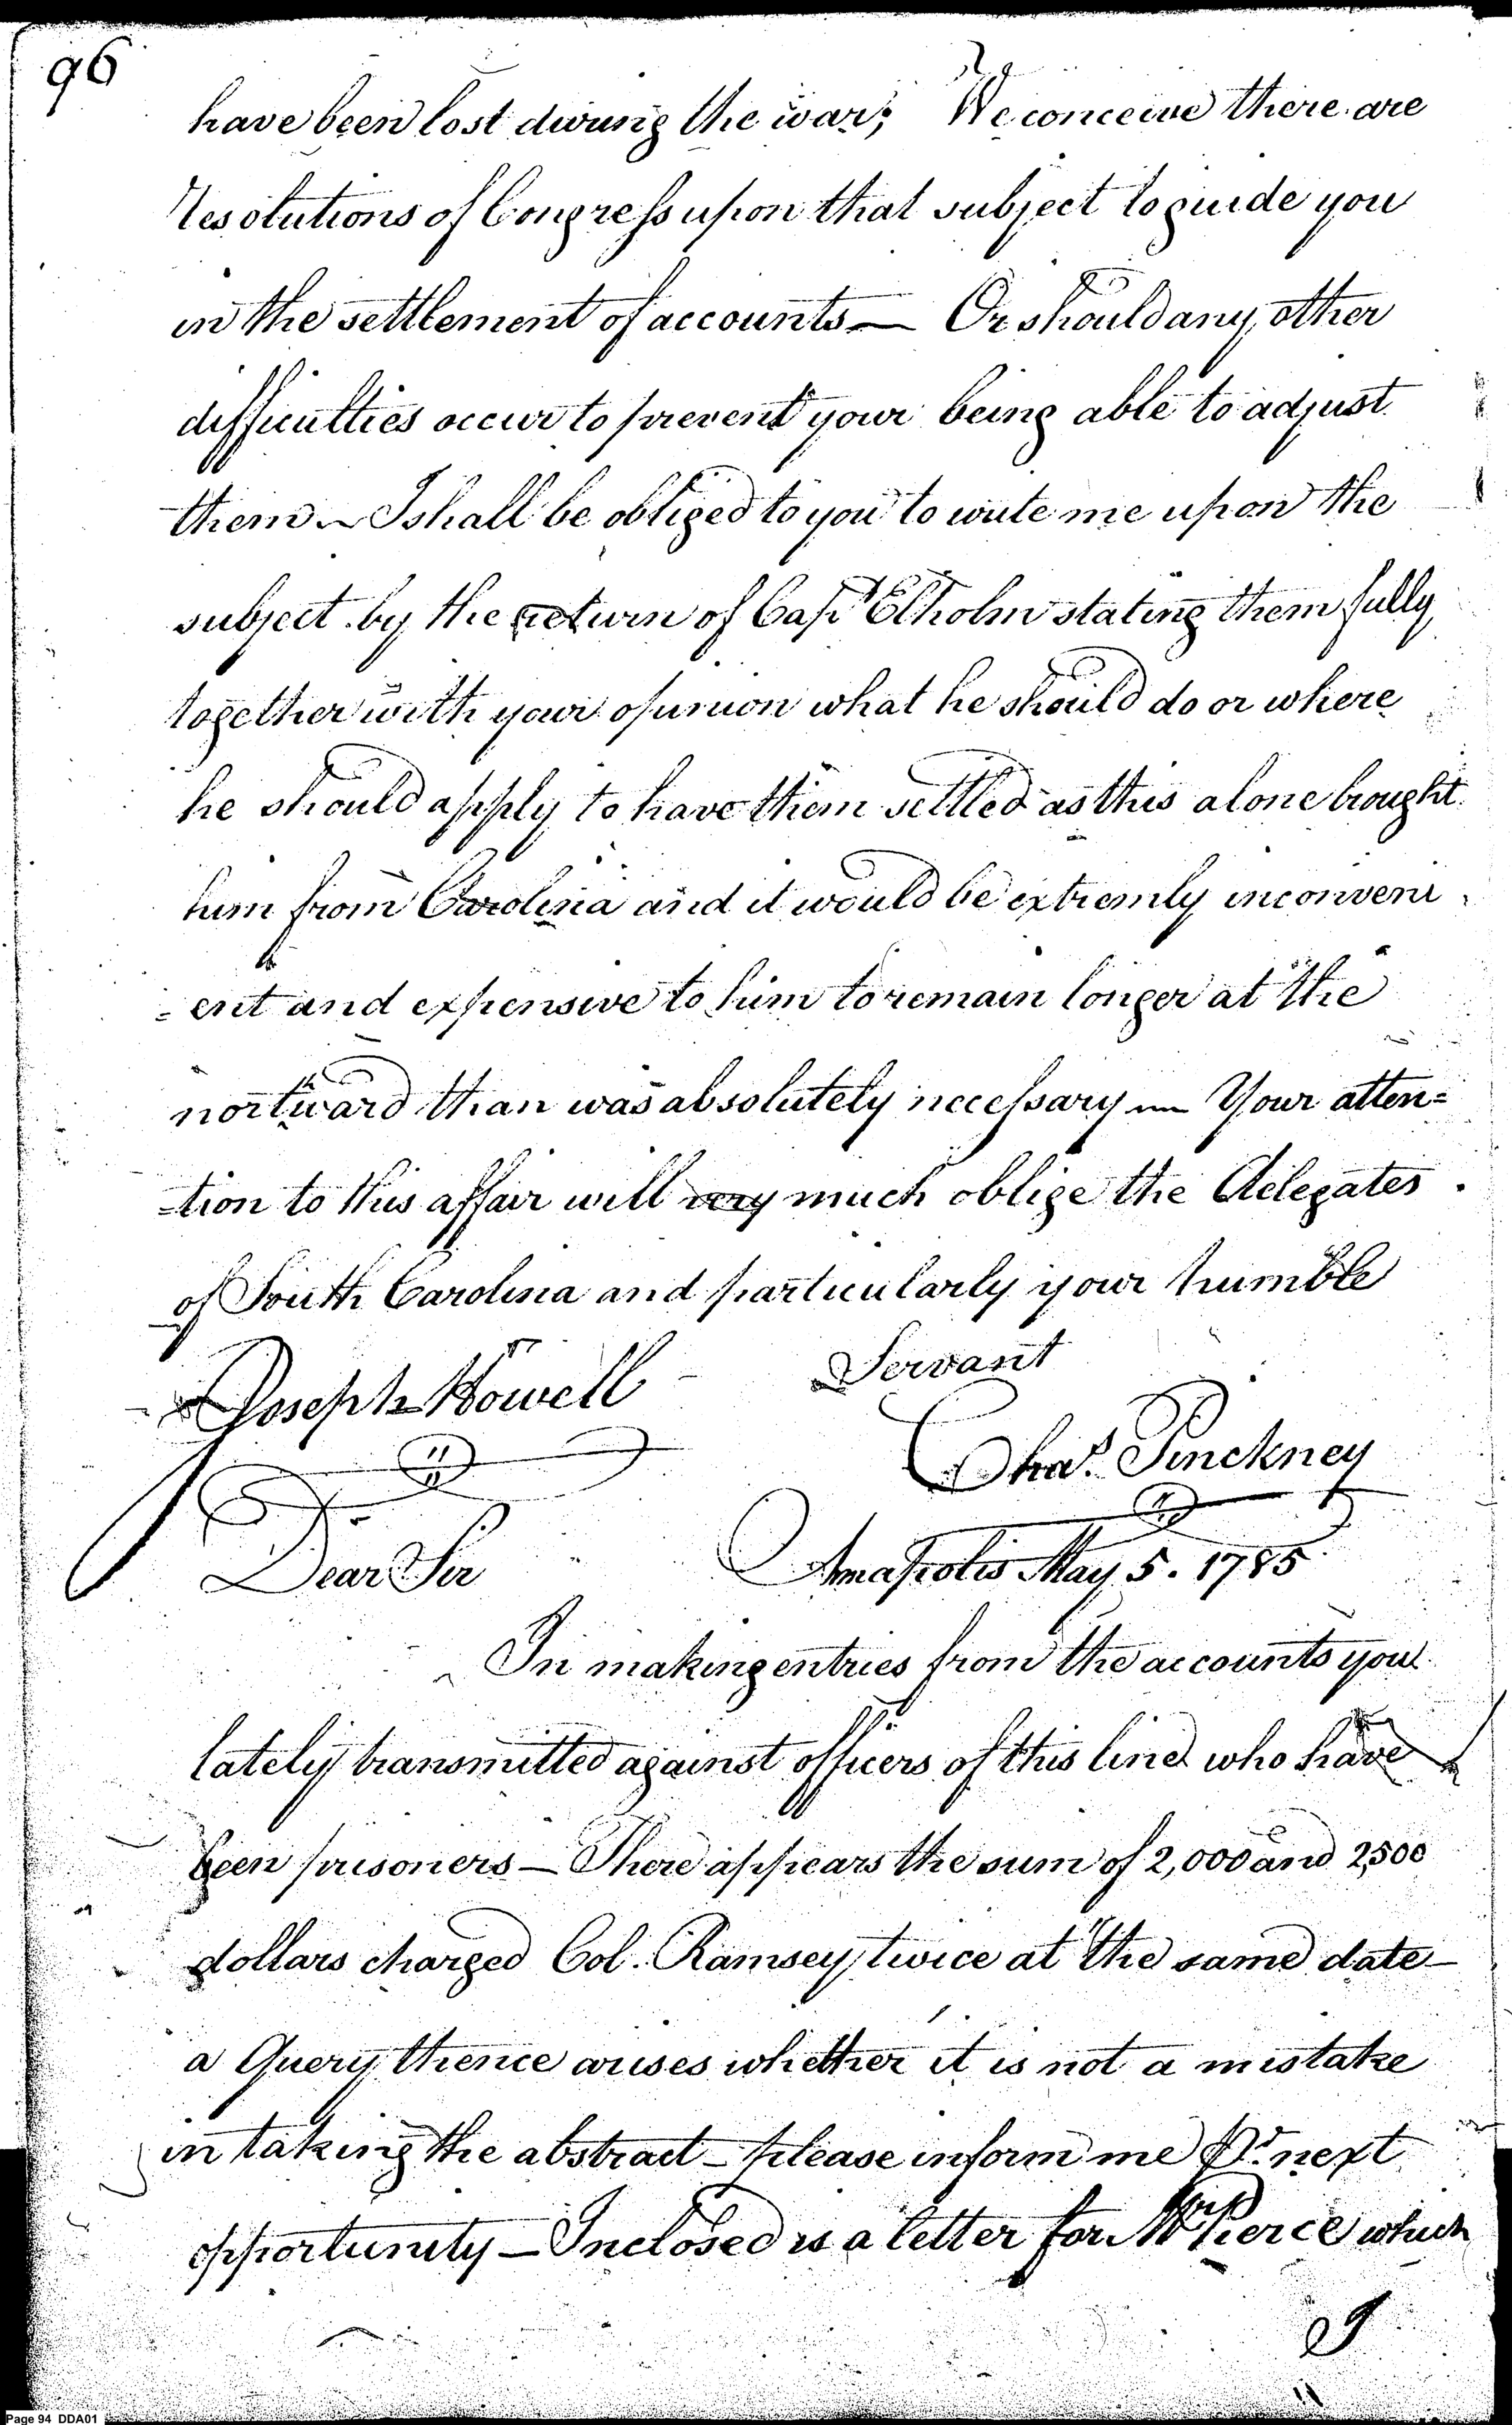 96
have been lost during the war; We conceive there are
resolutions of Congress upon that subject to guide you
in the settlement of accounts — Or should any other
difficulties occur to prevent your being able to adjust
them — I shall be obliged to you to write me upon the
subject by the return of Capt Elholm stating them fully
together with your opinion what he should do or where
he should apply to have them settled as this alone brought
him from Carolina and it would be extremly inconveni
=ent and expensive to him to remain longer at the
northward than was absolutely necessary — Your atten=
=tion to this affair will very much oblige the Delegates
of South Carolina and particularly your humble
Servant
Joseph Howell
Chas. Pinckney
Annapolis May 5. 1785
Dear Sir
In making entries from the accounts you
lately transmitted against officers of this line who have
been prisoners — There appears the sum of 2,000 and 2500
dollars charged Col. Ramsey twice at the same date —
a Query thence arises whether it is not a mistake
in taking the abstract — please inform me Pr. next
opportunity — Inclosed is a letter for Mr Pierce which
Page 94 DDA01